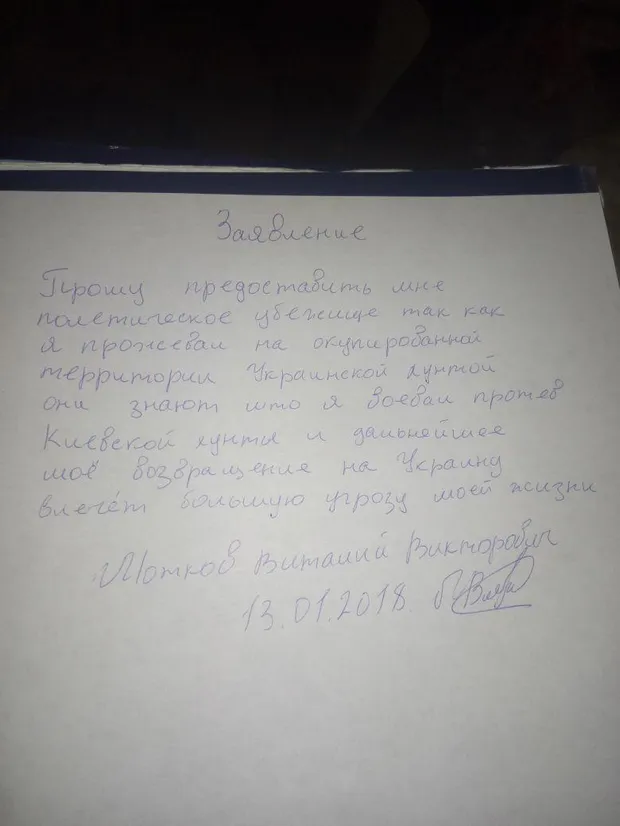 Заявление
Прошу предоставить мне
полетическое убежище так как
я прожевал на окупированной
территории Украинской хунтой
они знают што я воевал протев
Киевской хунты и дальнейшее
моё возвращение на Украину
влечёт большую угрозу моей жизни
Мотков Виталий Викторович
13.01.2018.